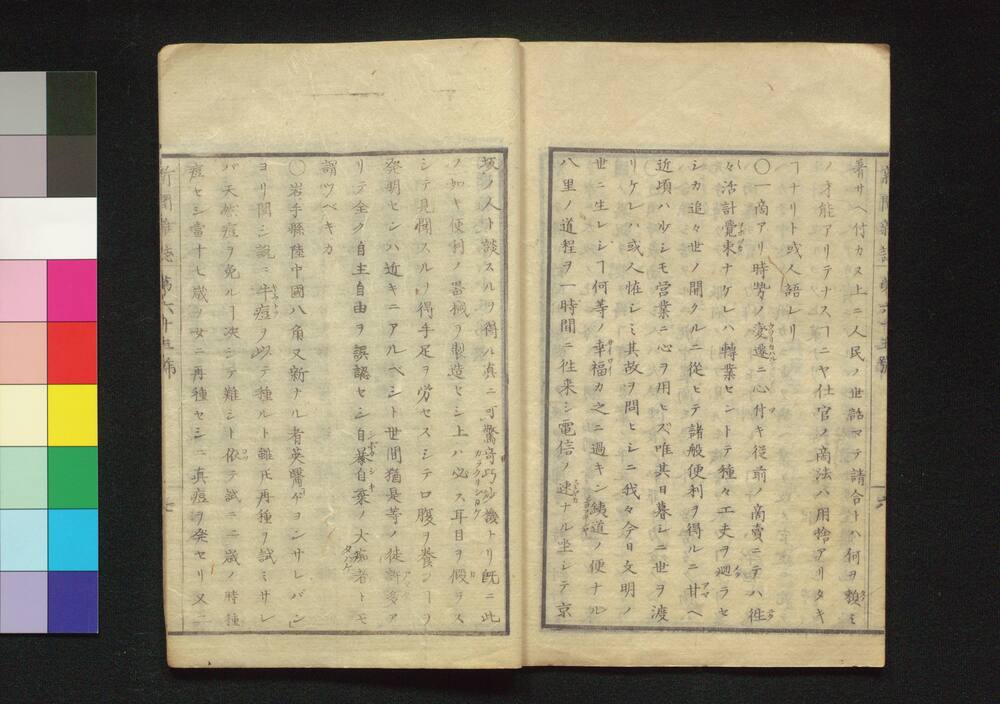 著サヘ付カヌ上ニ人民ノ世話マテ請合トハ何ヲ頼ミ
ノ才能アリテナスヿニヤ仕官ノ商法ハ用捨アリタキ
ヿナリト或人語レリ
〇一商アリ時勢ノ変遷ニ心付キ従前ノ商賣ニテハ往
々活計覺束ナケレハ轉業セントテ種々工夫ヲ廻ラセ
シカ追々世ノ開クルニ從ヒテ諸般便利ヲ得ルニ甘ヘ
近頃ハルシモ営業ニ心ヲ用ヒズ唯其日暮シニ世ヲ渡
リケレハ或人怪シミ其故ヲ問ヒシニ我々今日文明ノ
世ニ生レシヿ何等ノ幸福カ之ニ過キン鉄道ノ便ナル
八里ノ道程ヲ一時間ニ往来シ電信ノ速ナル坐シテ京
六
坂ノ人ト談スルヲ得ル真ニ可驚奇巧妙機トリ既ニ此
ノ如キ便利ノ器械ヲ製造セシ上ハ必ス耳目ヲ假ラス
シテ見聞スルヲ得手足ヲ労セスシテ口腹ヲ養フヿヲ
発明センハ近キニアルベシト世間猶是等ノ徒許多ア
リテ全ク自主自由ヲ誤認セシ自暴自棄ノ大痴者トモ
謂ツベキカ
〇岩手縣陸中國八角又新ナル者英醫ゲヨンサレバン
ヨリ聞シ説ニ牛痘ヲ以テ種ルト雖𪜈再種ヲ試ミサレ
バ天然痘ヲ免ルヽヿ決シテ難シト依テ試ニ二歳ノ時種
痘セシ當十七歳ノ女ニ再種セシニ真痘ヲ発セリ又二
新聞雑誌 第六十五號
七